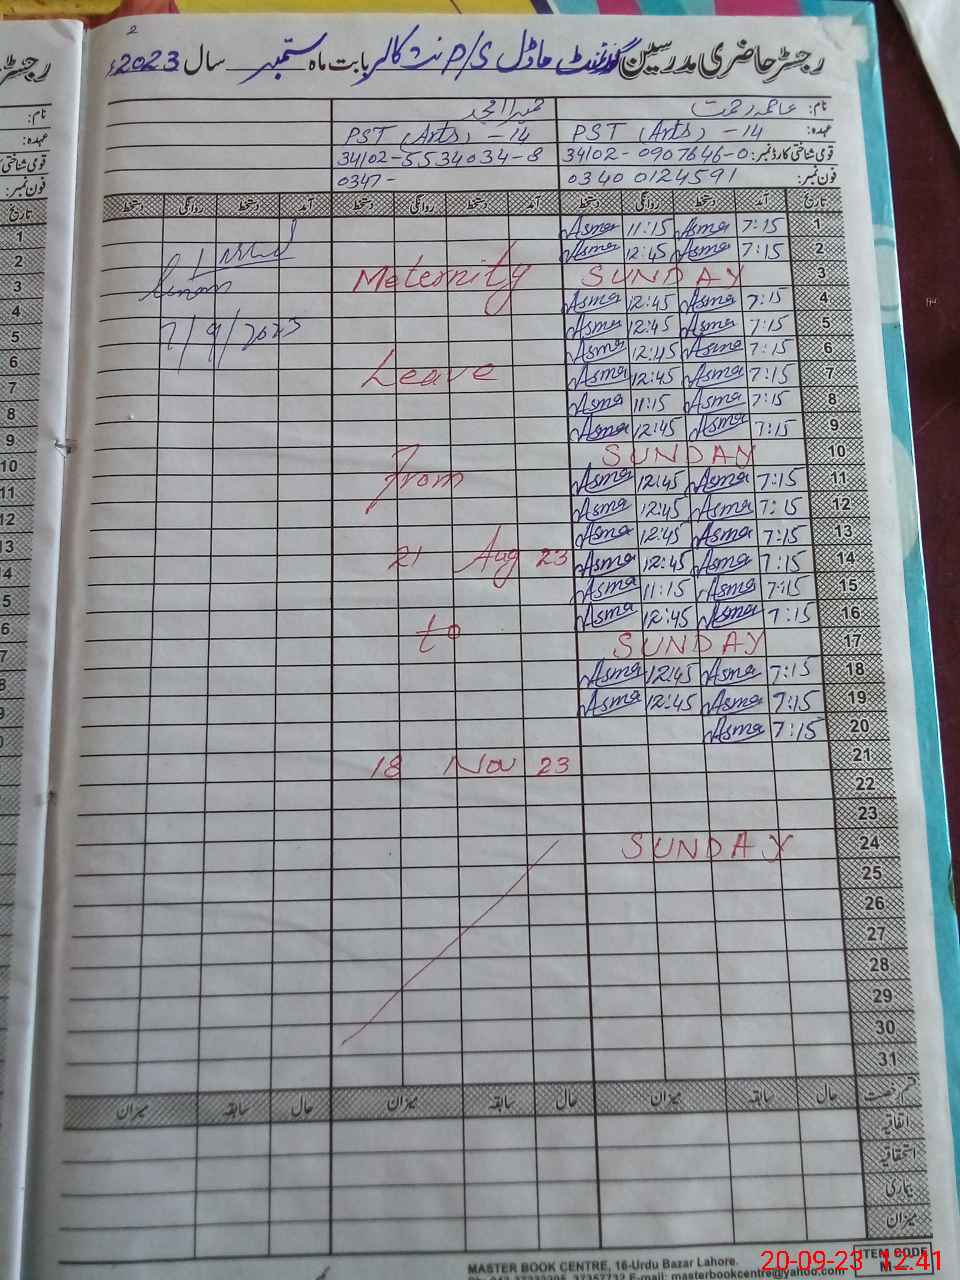 رجسٹر حاضری مدرسین گورنمنٹ ماڈل P/S بابت ماہ ستمبر سال 2023ء
نام:
عہدہ: PST (Arts) - 14 PST (Arts) - 14
قومی شناختی کارڈ نمبر: 34102-0907646-0 34102-5534034-8
فون نمبر: 0340 0124591 0347-
تاریخ آمد دستخط روانگی دستخط آمد دستخط روانگی دستخط آمد دستخط روانگی دستخط
1 7:15 Asma 11:15 Asma
2 7:15 Asma 12:45 Asma
3 SUNDAY Meternity
4 7:15 Asma 12:45 Asma
5 7:15 Asma 12:45 Asma 7/9/2023
6 7:15 Asma 12:45 Asma
7 7:15 Asma 12:45 Asma Leave
8 7:15 Asma 11:15 Asma
9 7:15 Asma 12:45 Asma
10 SUNDAY
11 7:15 Asma 12:45 Asma From
12 7:15 Asma 12:45 Asma
13 7:15 Asma 12:45 Asma
14 7:15 Asma 12:45 Asma 21 Aug 23
15 7:15 Asma 11:15 Asma
16 7:15 Asma 12:45 Asma
17 SUNDAY to
18 7:15 Asma 12:45 Asma
19 7:15 Asma 12:45 Asma
20 7:15 Asma
21 18 Nov 23
22
23
24 SUNDAY
25
26
27
28
29
30
31
قسم رخصت حال سابقہ میزان حال سابقہ میزان حال سابقہ میزان
اتفاقیہ
استحقاقیہ
بیماری
میزان
MASTER BOOK CENTRE, 16-Urdu Bazar Lahore.
E-mail: masterbookcentre@yahoo.com
ITEM CODE
M
20-09-23 12:41